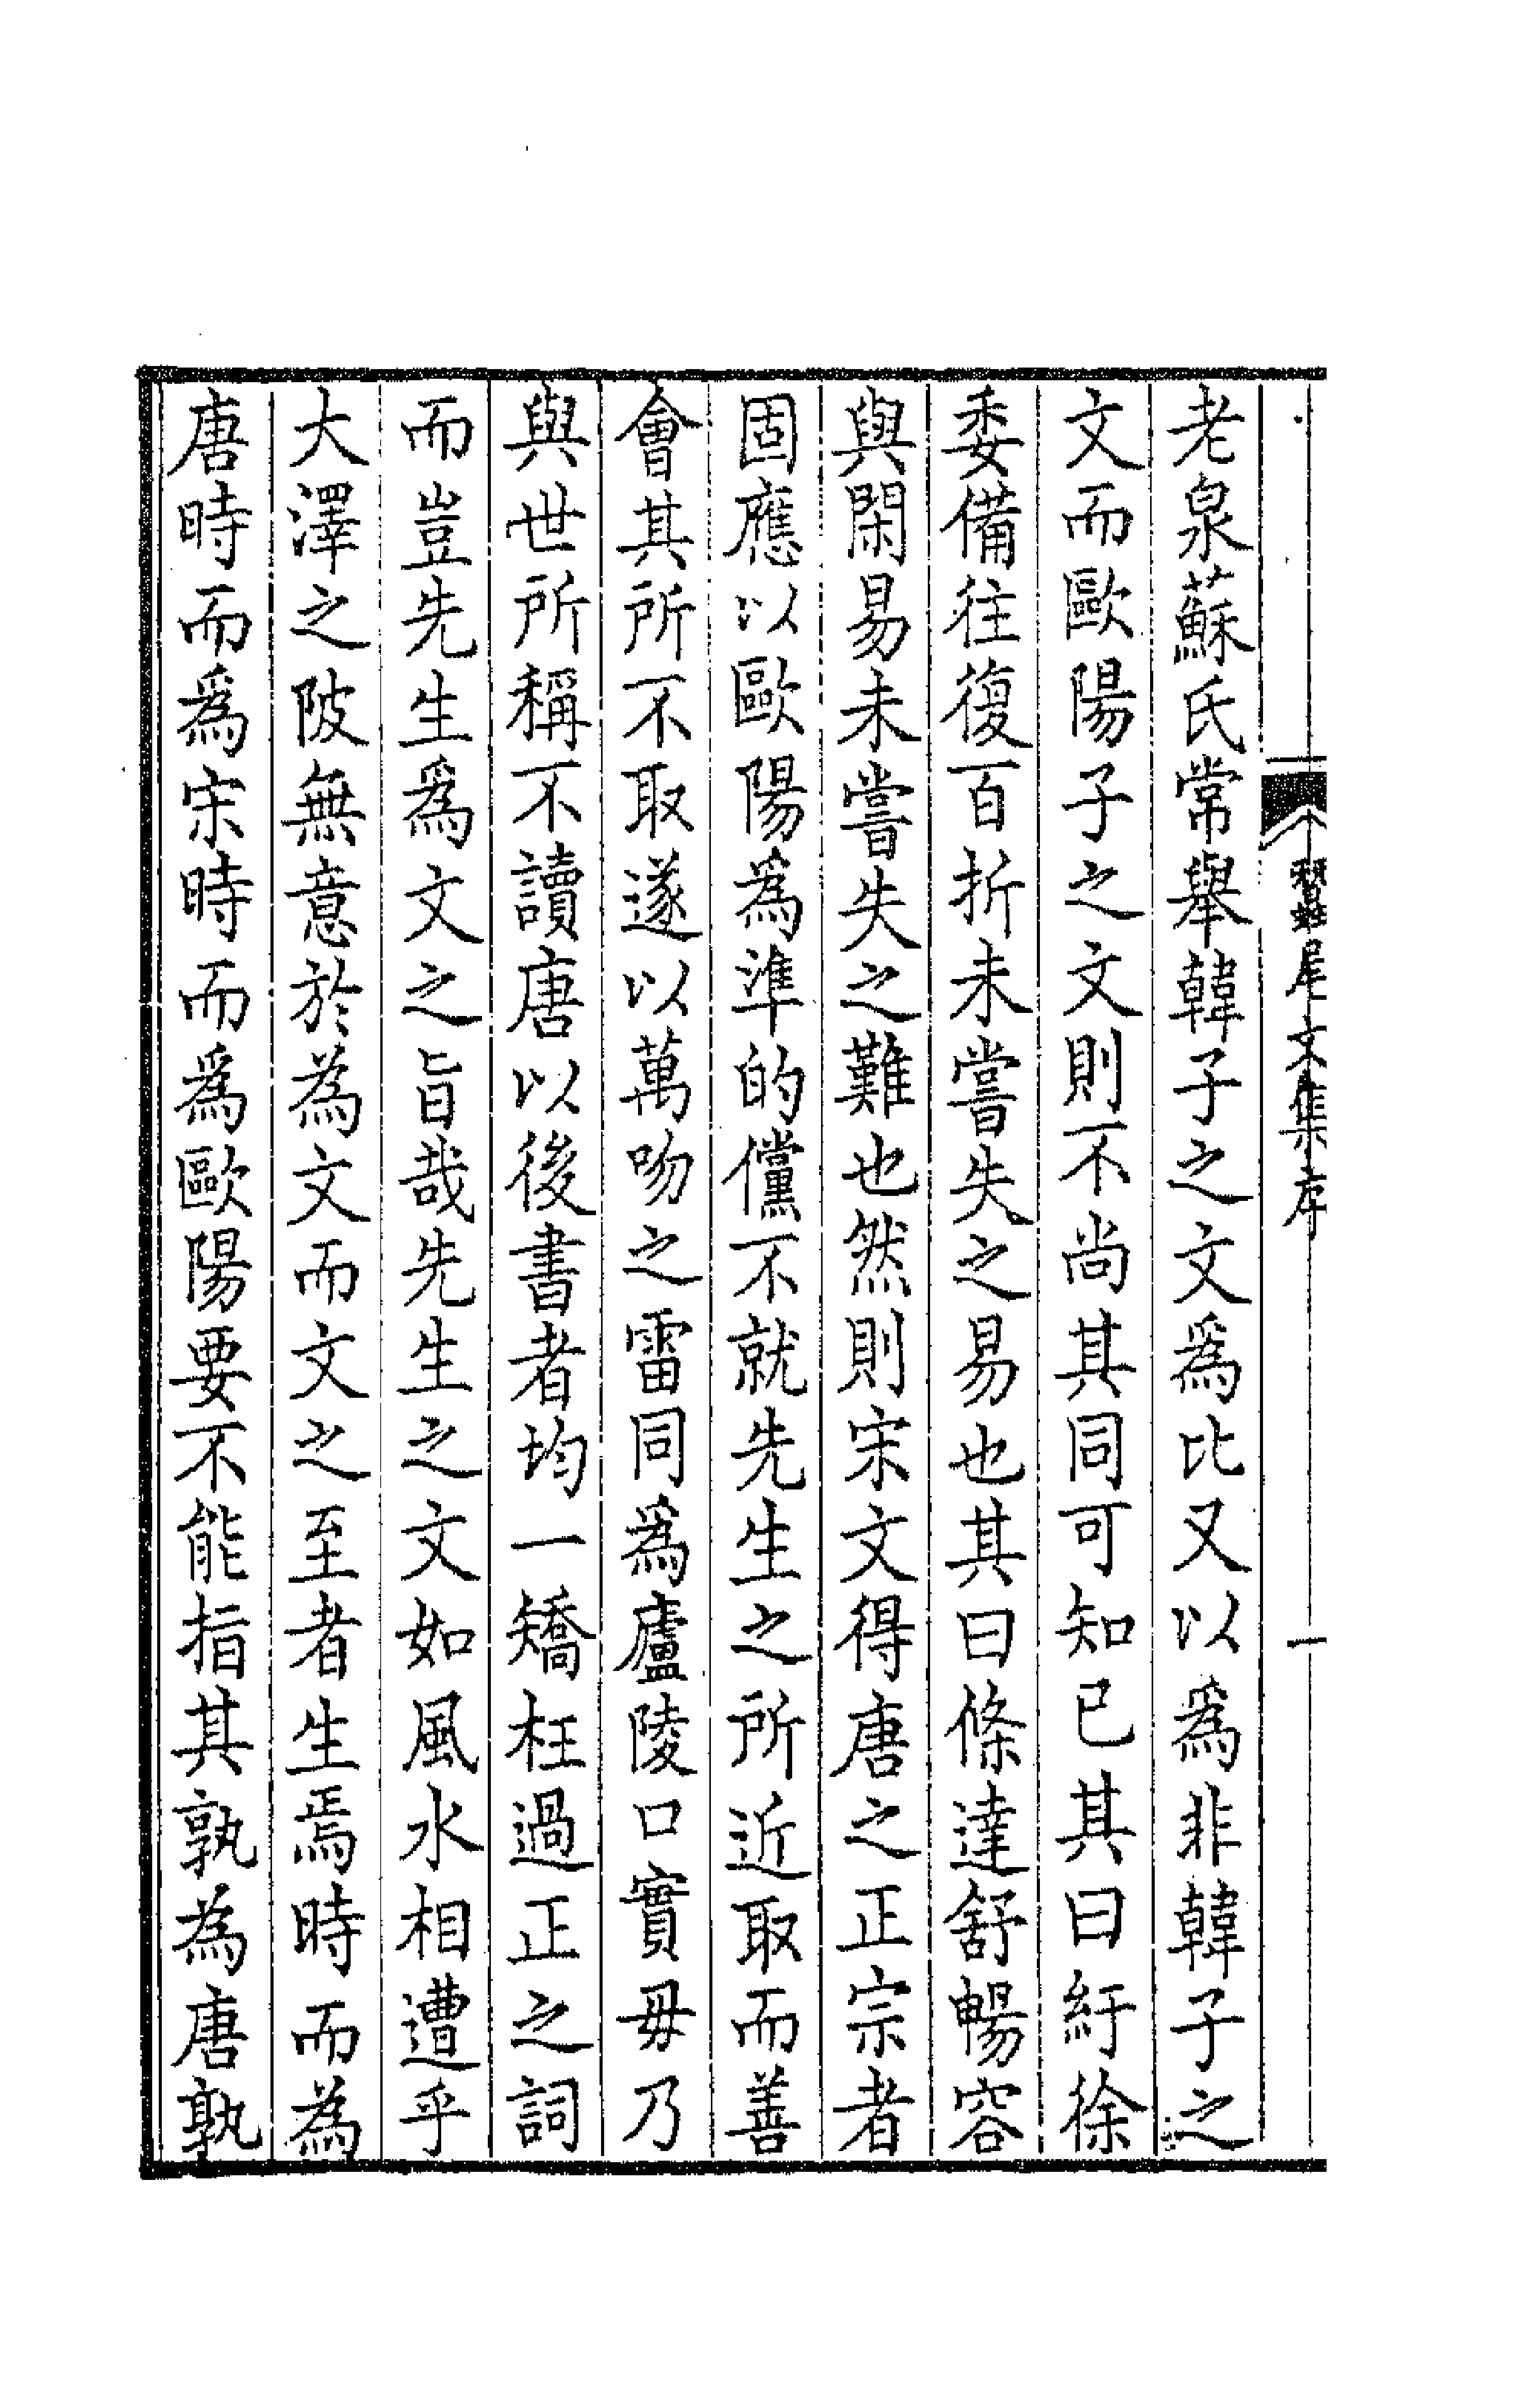 蠶尾文集序
一
老泉蘇氏常舉韓子之文爲比又以爲非韓子之
文而歐陽子之文則不尚其同可知已其曰紆徐
委備往復百折未嘗失之易也其曰條達舒暢容
與閑易未嘗失之難也然則宋文得唐之正宗者
固應以歐陽為準的儻不就先生之所近取而善
會其所不取遂以萬吻之雷同爲廬陵口實毋乃
與世所稱不讀唐以後書者均一矯枉過正之詞
而豈先生爲文之旨哉先生之文如風水相遭乎
大澤之陂無意於為文而文之至者生焉時而為
唐時而爲宋時而爲歐陽要不能指其孰為唐孰